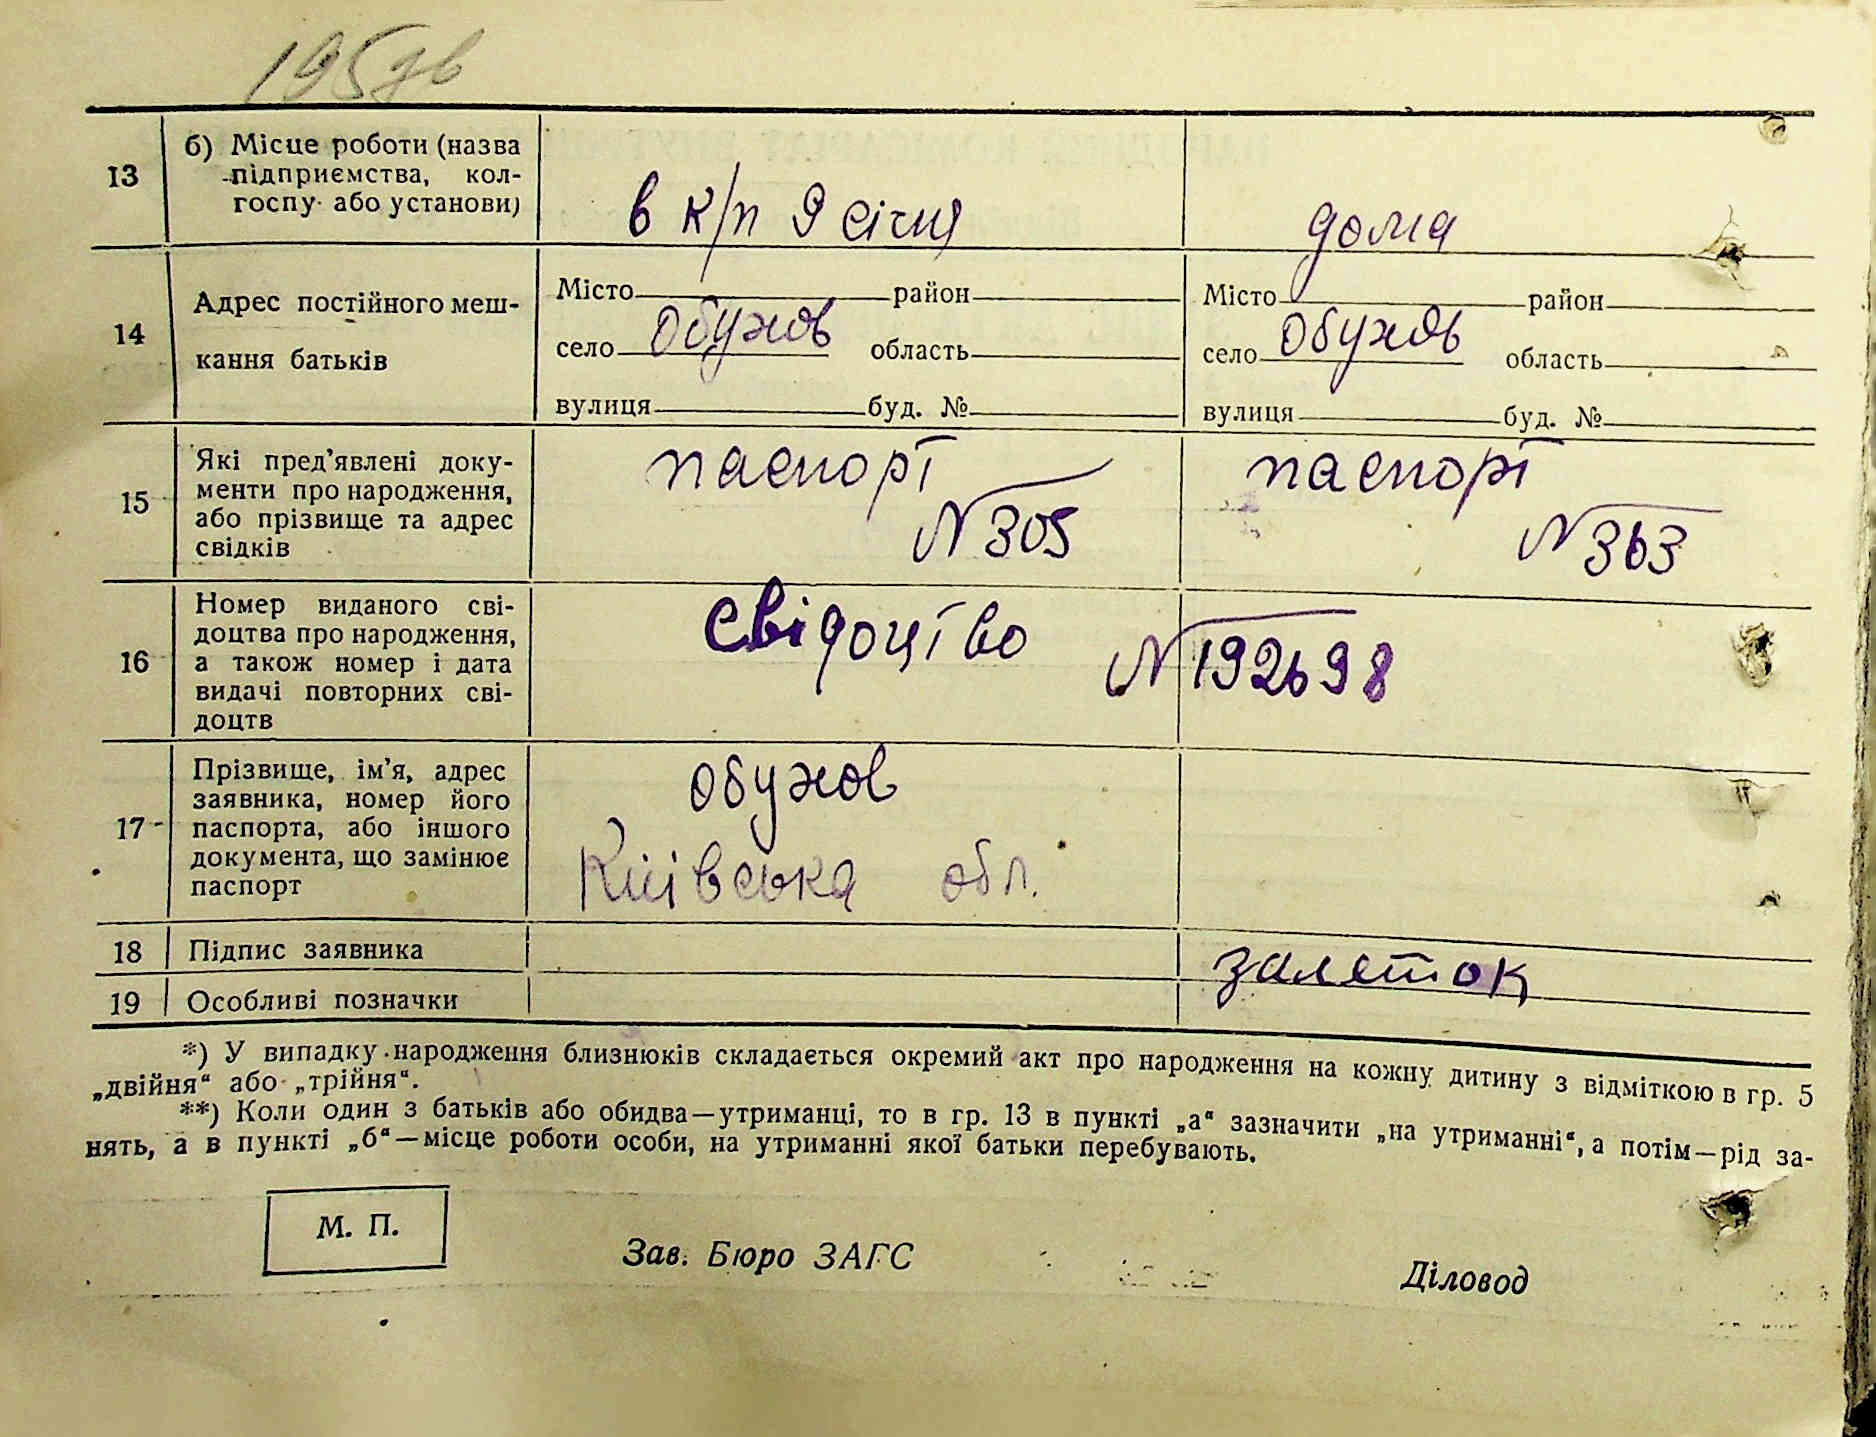 195 зв
13 б) Місце роботи (назва
підприємства, кол-
госпу або установи)
в к/п 9 січня дома
14 Адрес постійного меш-
кання батьків
Місто район Місто район
село Обухов область село Обухов область
вулиця буд. № вулиця буд. №
15 Які пред'явлені доку-
менти про народження,
або прізвище та адрес
свідків
паспорт паспорт
N 305 N 363
16 Номер виданого сві-
доцтва про народження,
а також номер і дата
видачі повторних сві-
доцтв
свідоцтво N 192698
17 Прізвище, ім'я, адрес
заявника, номер його
паспорта, або іншого
документа, що замінює
паспорт
Обухов
Київська обл.
18 Підпис заявника
залеток
19 Особливі позначки
*) У випадку народження близнюків складається окремий акт про народження на кожну дитину з відміткою в гр. 5
„двійня“ або „трійня“.
**) Коли один з батьків або обидва—утриманці, то в гр. 13 в пункті „а“ зазначити „на утриманні“, а потім—рід за-
нять, а в пункті „б“—місце роботи особи, на утриманні якої батьки перебувають.
М. П.
Зав. Бюро ЗАГС Діловод